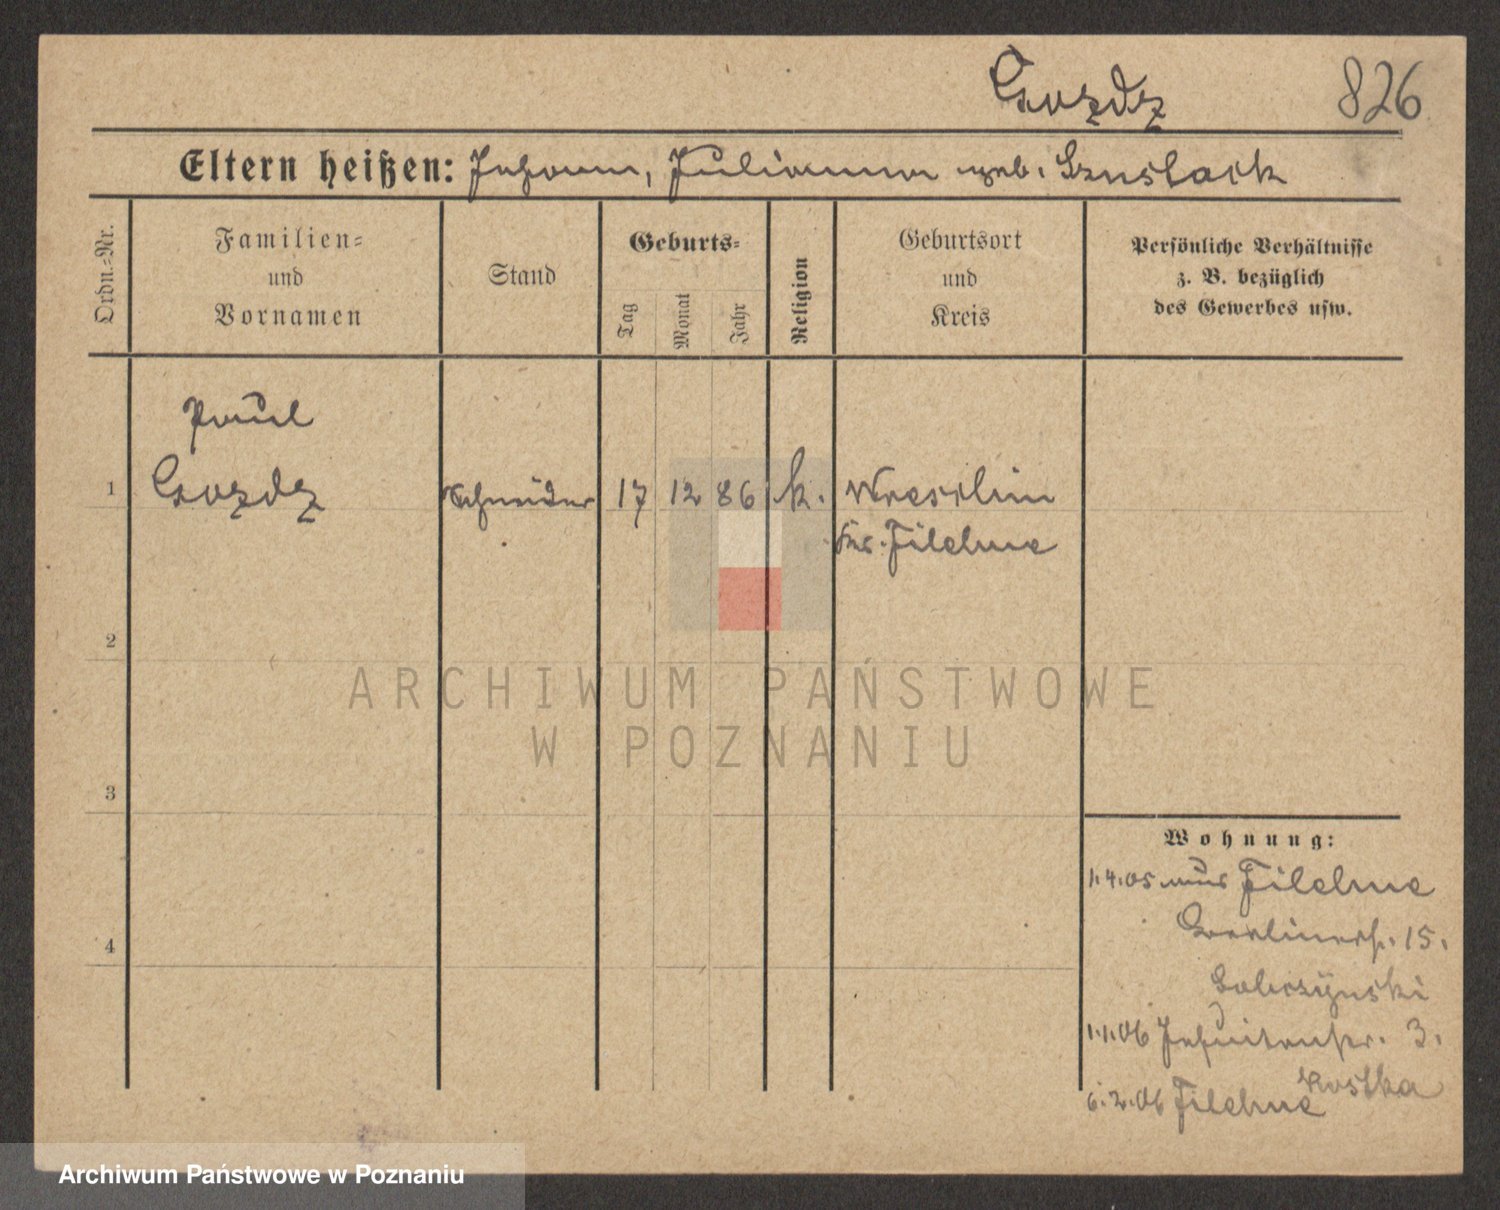 Gozdz 826
Eltern heißen: Johann, Julianna geb.
Ordn.=Nr.
Familien=
und
Vornamen
Stand
Geburts=
Tag
Monat
Jahr
Religion
Geburtsort
und
Kreis
Persönliche Verhältnisse
z. B. bezüglich
des Gewerbes usw.
Paul
1 Gozdz Schneider 17 12 86 k. Wreschin
Kr. Filehne
2
ARCHIWUM PAŃSTWOWE
W POZNANIU
3
Wohnung:
1.4.05 aus Filehne
4
Berlinerstr. 15.
1.1.06 Jesuitenstr. 3.
Kostka
6.2.06 Filehne
Archiwum Państwowe w Poznaniu